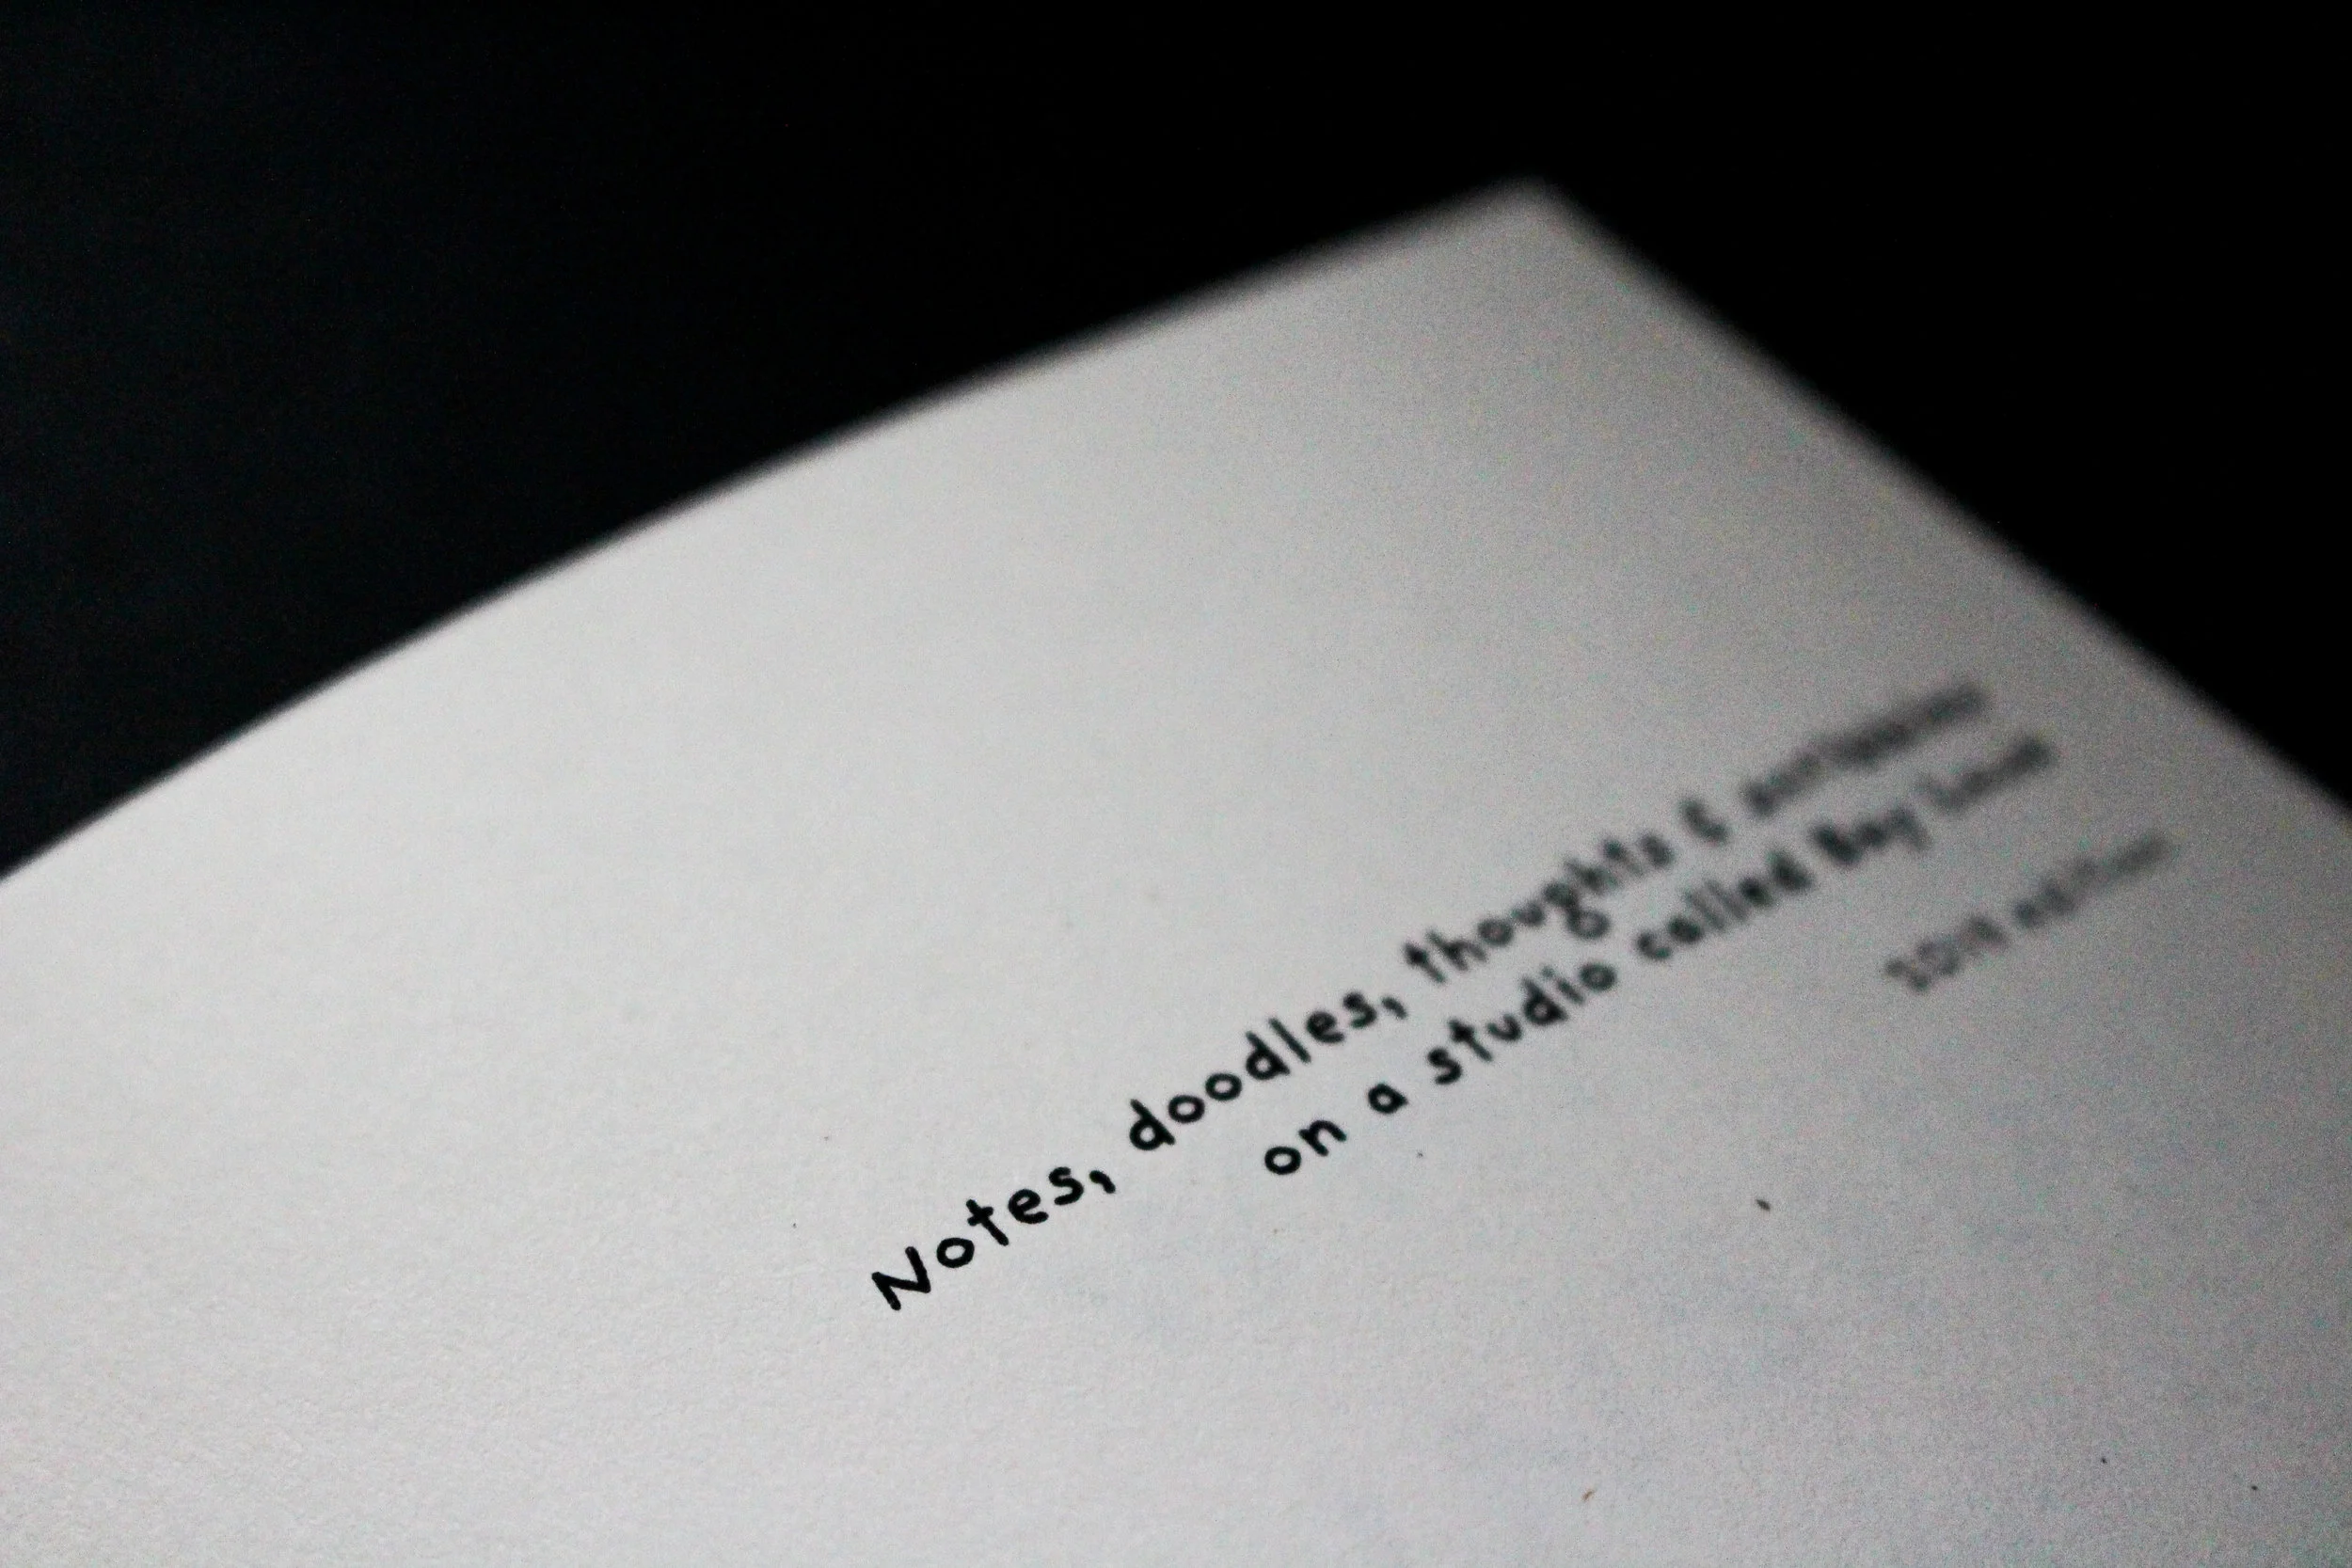 Notes, doodles, thoughts &
on a studio called Bay
edition